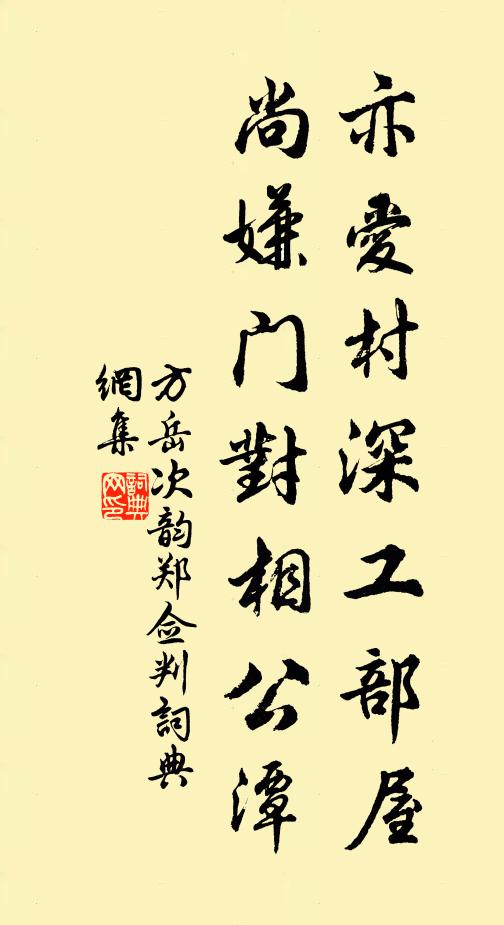 亦愛村深工部屋
尚嫌門對相公潭
方岳次韵郑佥判詞典
網集
詞典
网印